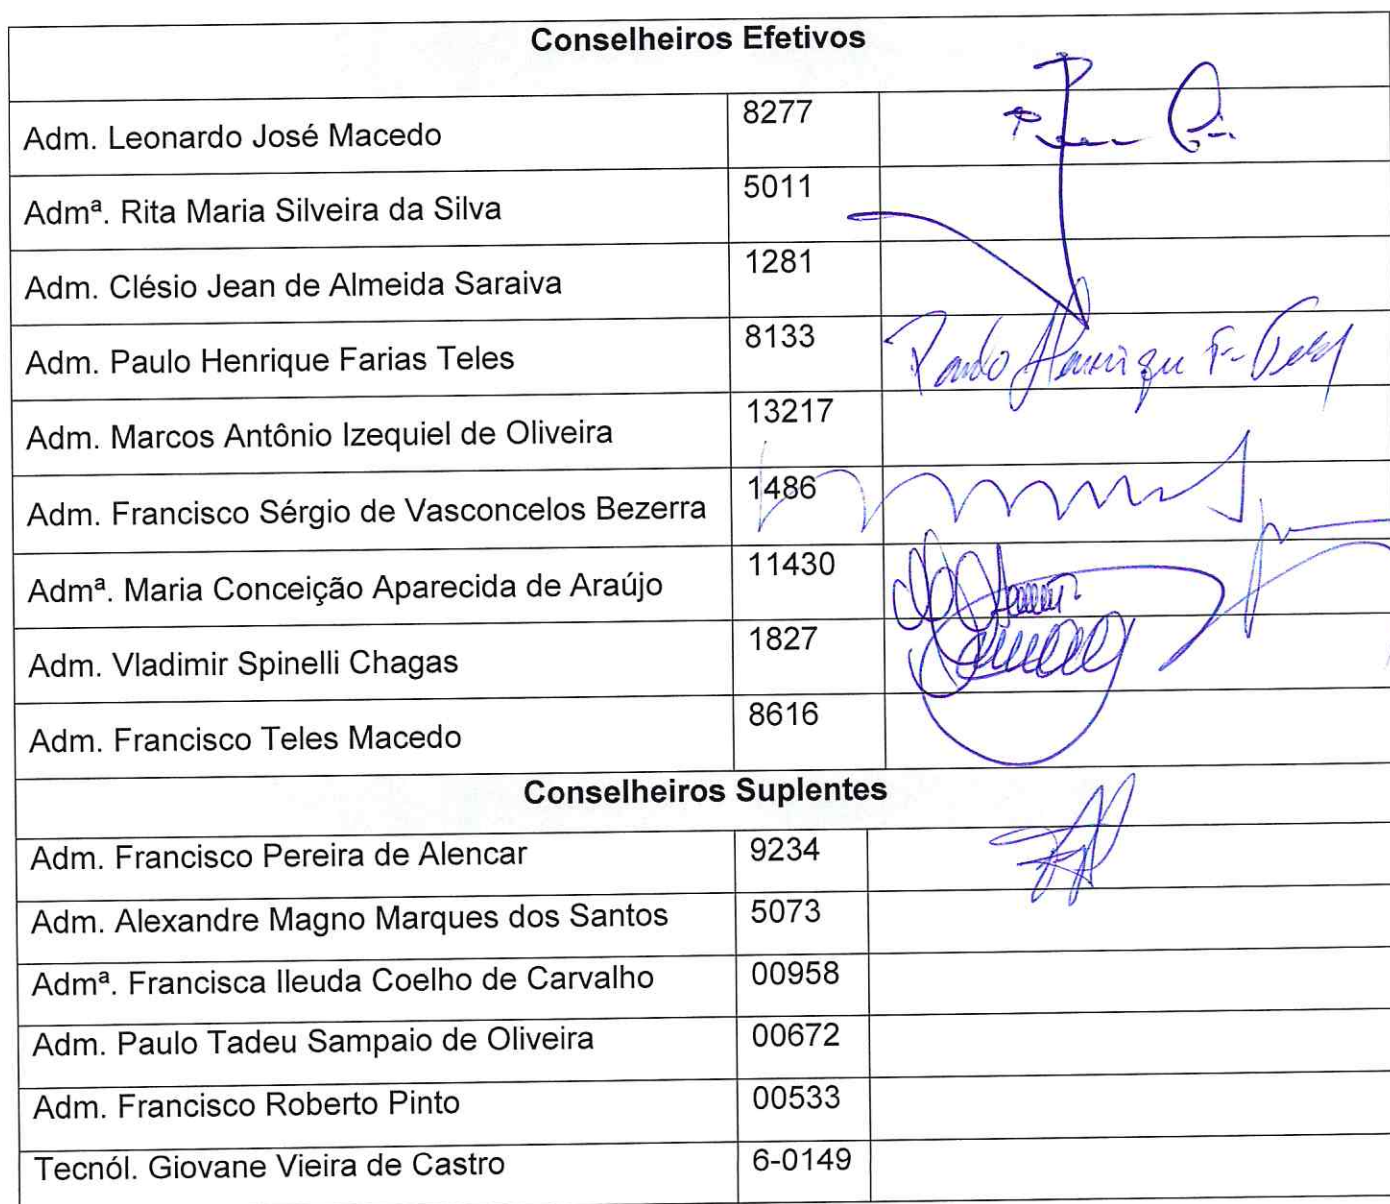 Conselheiros Efetivos
Adm. Leonardo José Macedo 8277
Admª. Rita Maria Silveira da Silva 5011
Adm. Clésio Jean de Almeida Saraiva 1281
Adm. Paulo Henrique Farias Teles 8133 Paulo Henrique F. Teles
Adm. Marcos Antônio Izequiel de Oliveira 13217
Adm. Francisco Sérgio de Vasconcelos Bezerra 1486
Admª. Maria Conceição Aparecida de Araújo 11430
Adm. Vladimir Spinelli Chagas 1827
Adm. Francisco Teles Macedo 8616
Conselheiros Suplentes
Adm. Francisco Pereira de Alencar 9234
Adm. Alexandre Magno Marques dos Santos 5073
Admª. Francisca Ileuda Coelho de Carvalho 00958
Adm. Paulo Tadeu Sampaio de Oliveira 00672
Adm. Francisco Roberto Pinto 00533
Tecnól. Giovane Vieira de Castro 6-0149